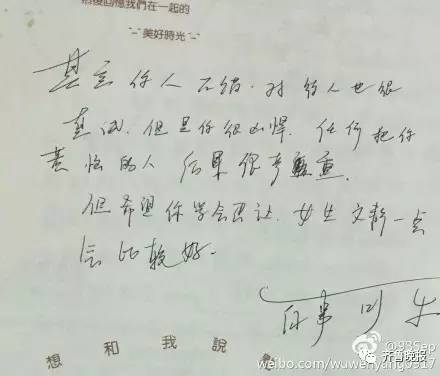 後回憶我們在一起的
美好時光
其实你人不错.对别人也很
真诚.但是你很凶悍.任何把你
惹恼的人 后果很严重.
但希望你学会忍让.女生文静一
会比较好.
想 和 我 說
@93Sep
齐鲁晚报
weibo.com/wuwenyang0317